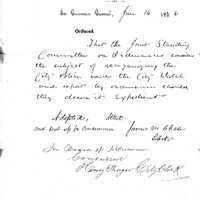 In Common Council, Jan 14 1856
Ordered,
That the Joint Standing
Committee on Ordinances consider
the subject of reorganizing the
City Police and the City Watch
and report by ordinance should
they deem it expedient
Adopted,
and sent up for concurrence James M. Chase
Clerk
In Board of Aldermen
Concurred
City Clerk